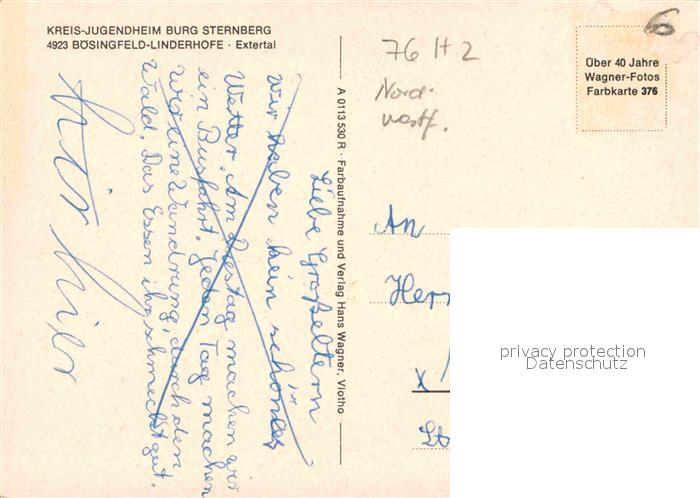 KREIS-JUGENDHEIM BURG STERNBERG
4923 BÖSINGFELD-LINDERHOFE · Extertal
Liebe Großeltern
Wir haben kein schönes
Wetter. Am Diestag machen wir
ein Busfahrt. Jeden Tag machen
wir eine Wandrung, durch den
Wald. Das Essen ihr schmeckt gut.
A 0113 530 R · Farbaufnahme und Verlag Hans Wagner, Vlotho
76 H 2
Nord-
westf.
6
Über 40 Jahre
Wagner-Fotos
Farbkarte 376
An
Herr
x
privacy protection
Datenschutz